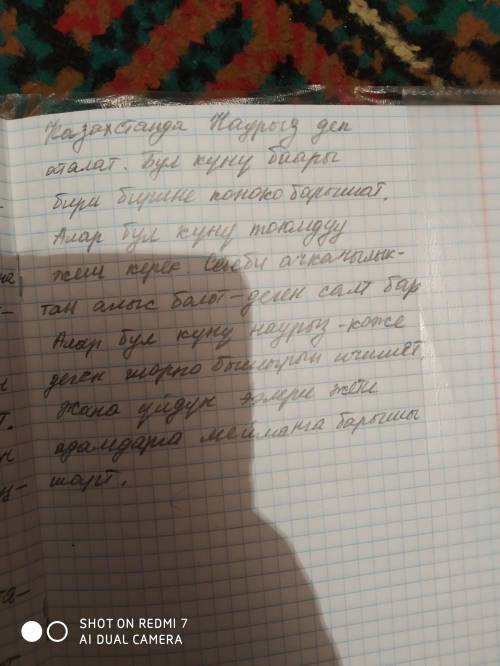 Казахстанда Наурыз деп
аталат. Бул куну баары
бири бирине конокко барышат.
Алар бул куну тоюмдуу
жеш керек Себеби ачкачылык-
тан алыс болот - деген салт бар
Алар бул куну наурыз - коже
деген шорпо бышырып ичишет
жана уйдун ээлери жети
адамдарга мейманга барышы
шарт.
SHOT ON REDMI 7
AI DUAL CAMERA